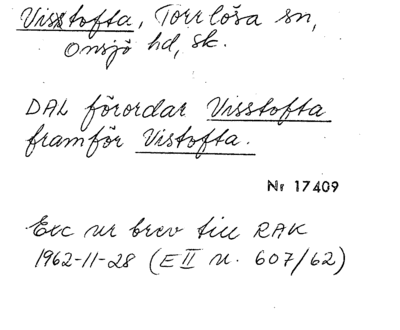 Visstofta, Torrlösa sn,
Onsjö hd, Sk.
DAL förordar Visstofta
framför Vistofta.
Nr 17409
Exc ur brev till RAK
1962-11-28 (E II u. 607/62)